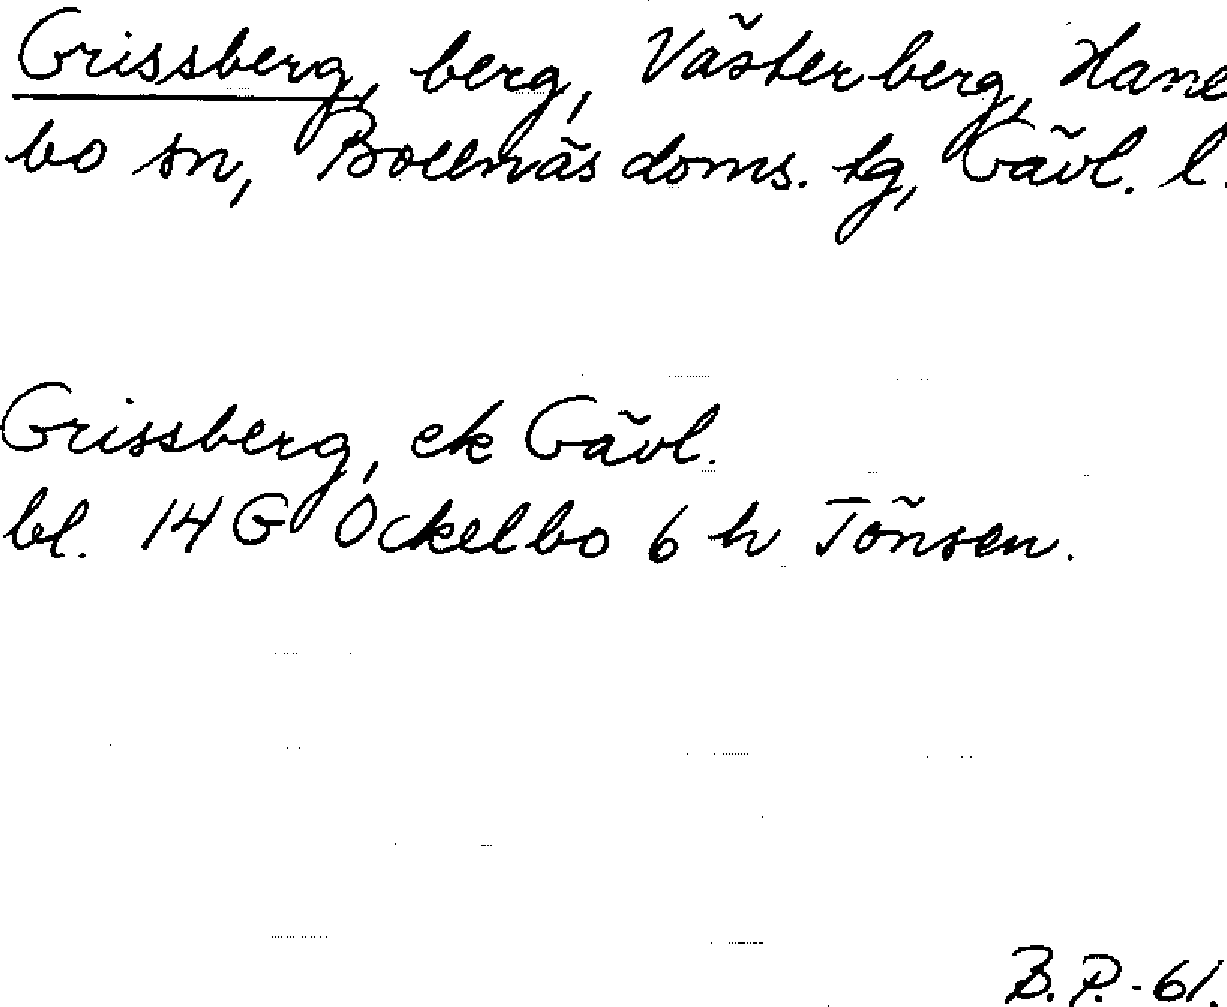 Grissberg, berg, Västerberg, Hane
bo sn, Bollnäs doms. tg, Gävl. l.
Grissberg, ek Gävl.
bl. 14 G Ockelbo 6 h Tönsen.
B.P.-61.